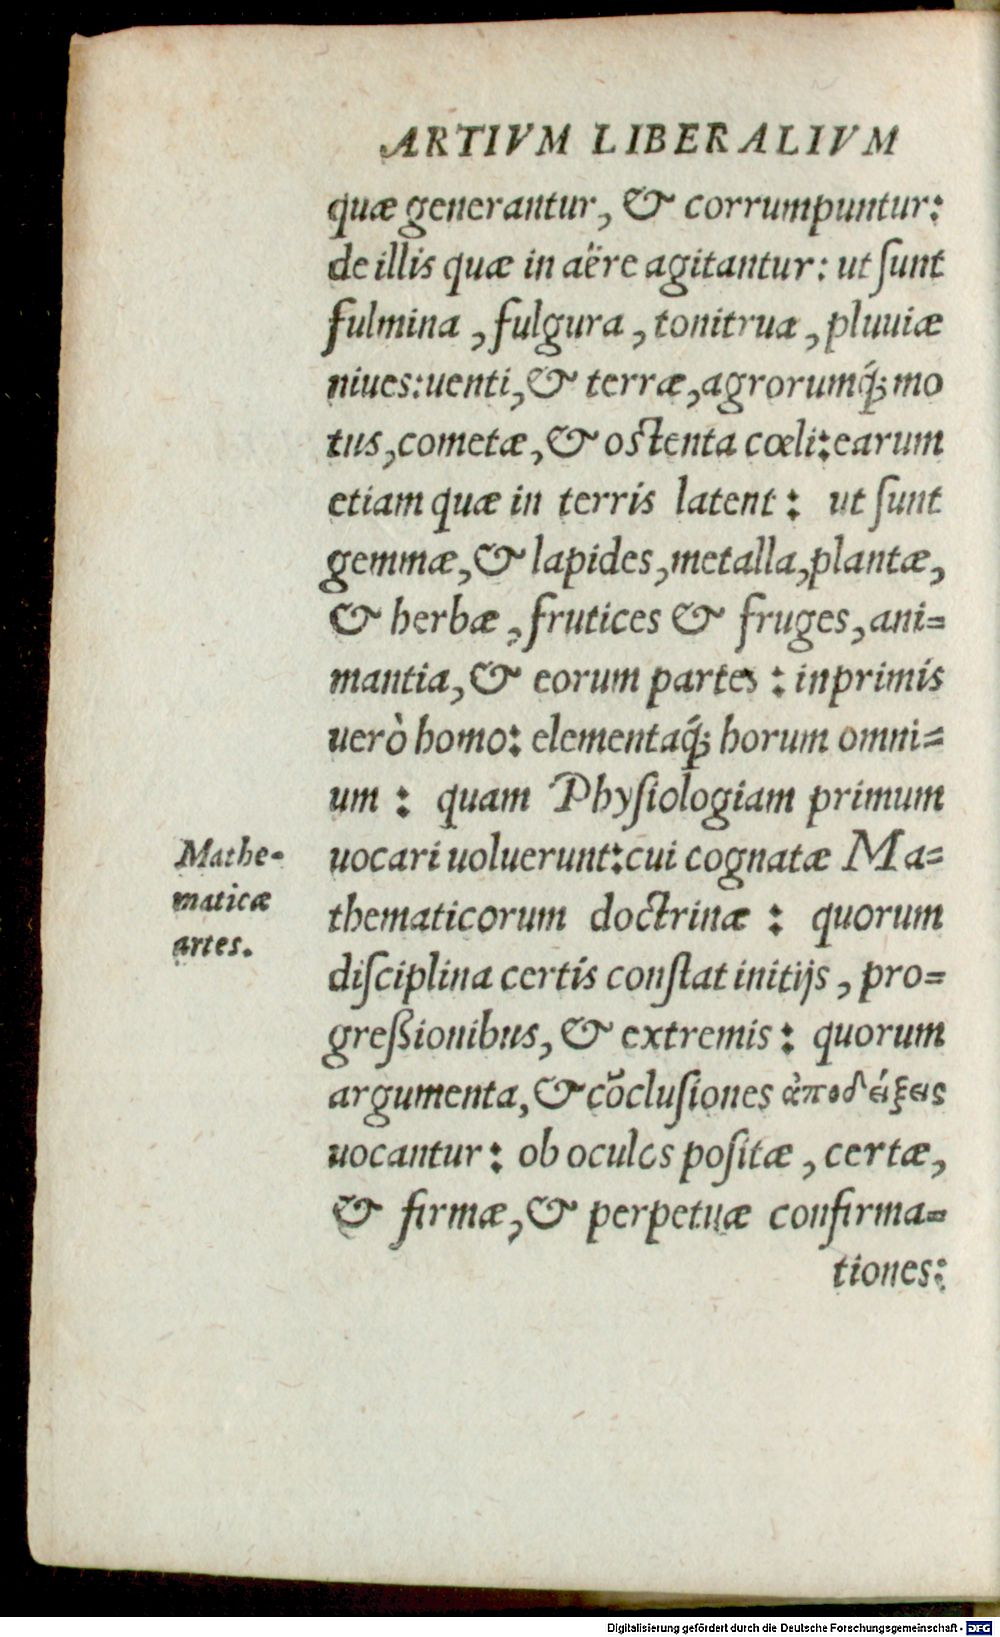 ARTIVM LIBERALIVM
quæ generantur, & corrumpuntur:
de illis quæ in aëre agitantur: ut ſunt
fulmina, fulgura, tonitrua, pluuiæ
niues: uenti, & terræ, agrorumq́; mo
tus, cometæ, & oſtenta cœli: earum
etiam quæ in terris latent: ut ſunt
gemmæ, & lapides, metalla, plantæ,
& herbæ, frutices & fruges, ani=
mantia, & eorum partes: inprimis
uerò homo: elementaq́; horum omni=
um: quam Phyſiologiam primum
Mathe-
maticæ
artes.
uocari uoluerunt: cui cognatæ Ma=
thematicorum doctrinæ: quorum
diſciplina certis conſtat initijs, pro=
greßionibus, & extremis: quorum
argumenta, & cōcluſiones ἀποδείξεις
uocantur: ob oculos poſitæ, certæ,
& firmæ, & perpetuæ confirma=
tiones:
Digitalisierung gefördert durch die Deutsche Forschungsgemeinschaft - DFG